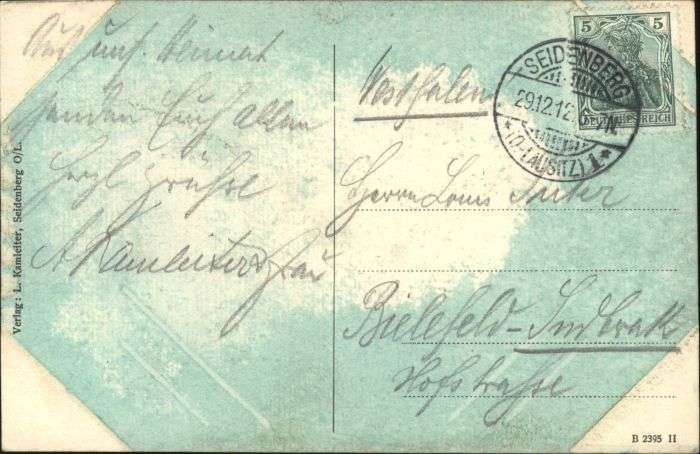 Aus uns. Heimat
senden Euch allen
herzl Grüsse
A Kamleiter & Frau
Verlag: L. Kamleiter, Seidenberg O/L.
Westfalen
5 5
DEUTSCHES REICH
SEIDENBERG
29.12.12.
*(O-LAUSITZ)1*
Herrn Louis
Bielefeld-
Hofstrasse
B 2395 II